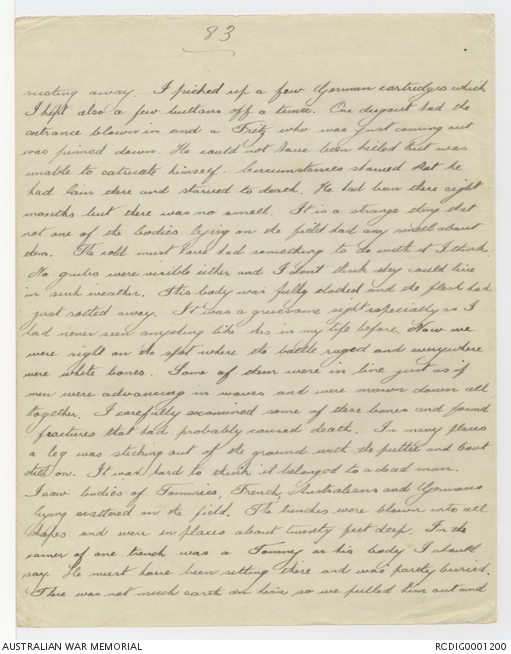 83
rusting away. I picked up a few German cartridges which
I kept also a few buttons off a tunic. One dugout had the
entrance blown in and a Fritz who was just coming out
was pinned down. He could not have been killed but was
unable to extricate himself. Circumstances shewed that he
had lain there and starved to death. He had been there eight
months but there was no smell. It is a strange thing that
not one of the bodies lying on the field had any smell about
them. The cold must have had something to do with it I think.
No grubs were visible either and I don't think they could live
in such weather. This body was fully clothed and the flesh had
just rotted away. It was a gruesome sight especially as I
had never seen anything like this in my life before. Now we
were right on the spot where the battle raged and everywhere
were white bones. Some of them were in line just as if
men were advancing in waves and were mown down all
together. I carefully examined some of these bones and found
fractures that had probably caused death. In many places
a leg was sticking out of the ground with the puttee and boot
still on. It was hard to think it belonged to a dead man.
I saw bodies of Tommies, French, Australians and Germans
lying scattered on the field. The trenches were blown into all
shapes and were in places about twenty feet deep. In the
corner of one trench was a Tommy or his body I should
say. He must have been sitting there and was partly buried.
There was not much earth on him so we pulled him out and
AUSTRALIAN WAR MEMORIAL
RCDIG0001200